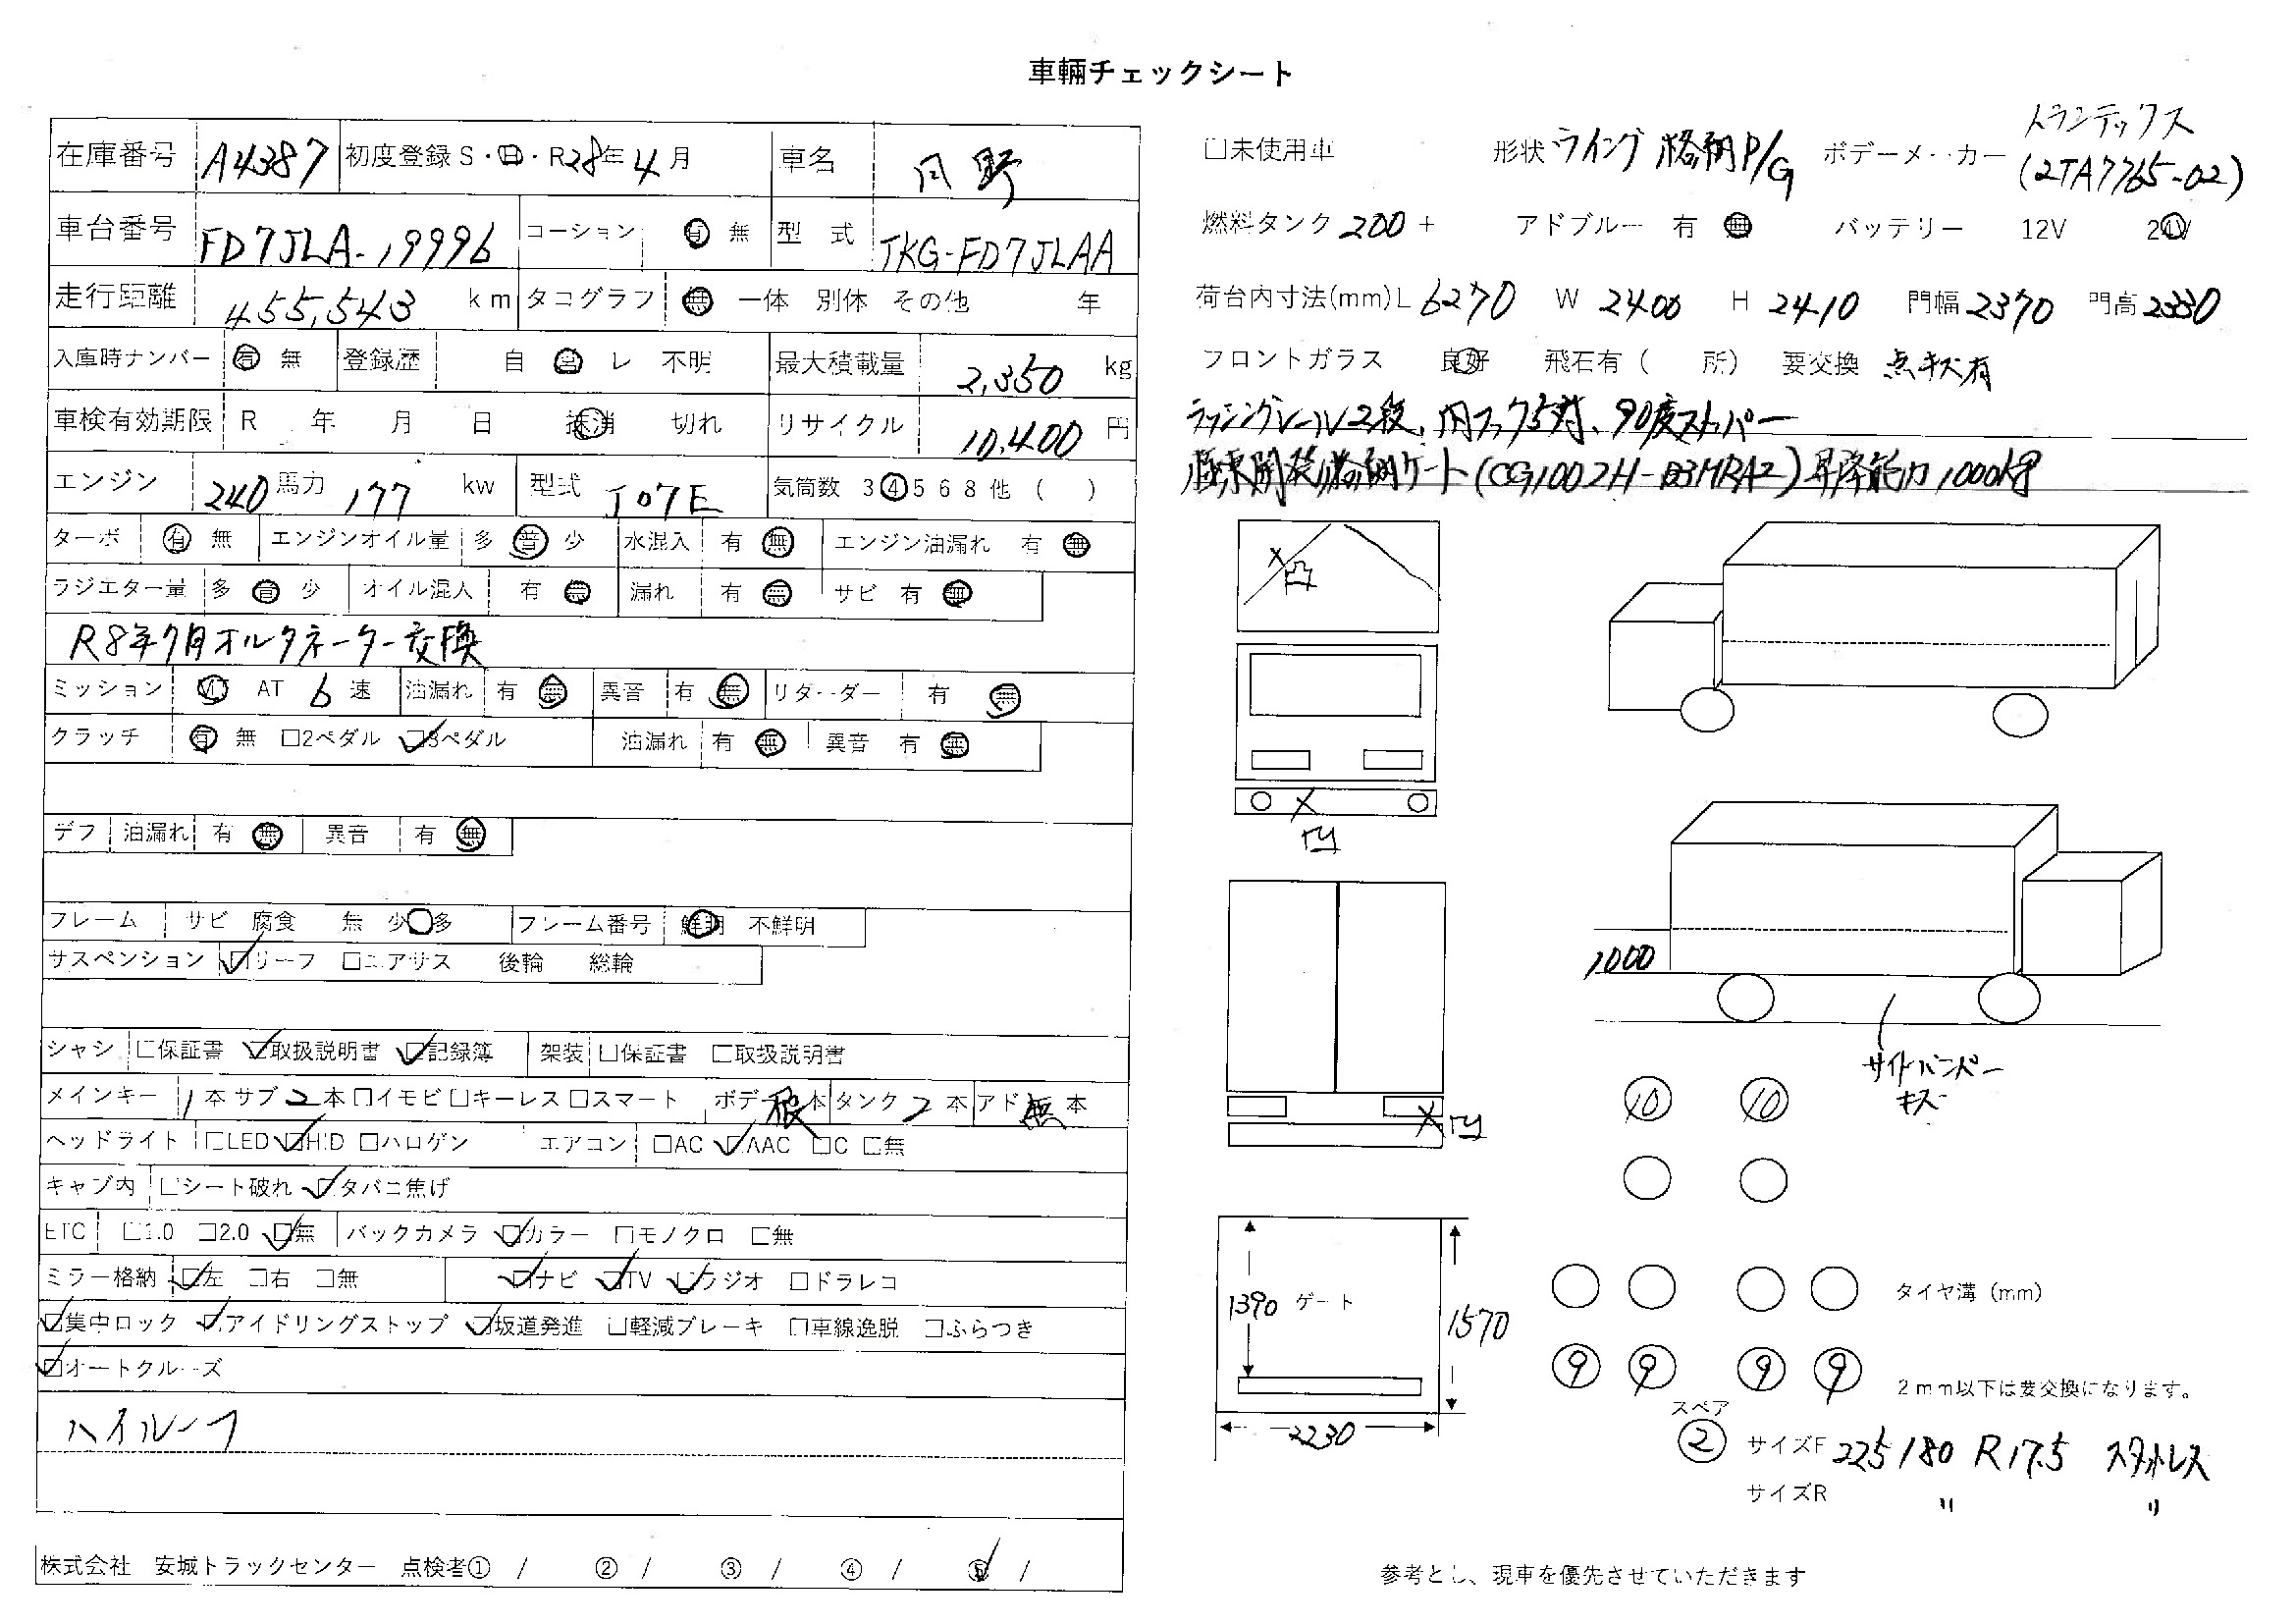 車輛チェックシート
在庫番号 A4387 初度登録 S・H・R 28年 4月 車名 日野
車台番号 FD7JLA-19996 コーション 有 無 型式 TKG-FD7JLAA
走行距離 455,543 km タコグラフ 無 一体 別体 その他 年
入庫時ナンバー 有 無 登録歴 自 営 レ 不明 最大積載量 2,350 kg
車検有効期限 R 年 月 日 抹消 切れ リサイクル 10,400 円
エンジン 240 馬力 177 kw 型式 J07E 気筒数 3 4 5 6 8 他 ( )
ターボ 有 無 エンジンオイル量 多 普 少 水混入 有 無 エンジン油漏れ 有 無
ラジエター量 多 普 少 オイル混入 有 無 漏れ 有 無 サビ 有 無
R8年7月オルタネーター交換
ミッション MT AT 6 速 油漏れ 有 無 異音 有 無 リターダー 有 無
クラッチ 有 無 □2ペダル ☑3ペダル 油漏れ 有 無 異音 有 無
デフ 油漏れ 有 無 異音 有 無
フレーム サビ 腐食 無 少 多 フレーム番号 鮮明 不鮮明
サスペンション ☑リーフ □エアサス 後輪 総輪
シャシ □保証書 ☑取扱説明書 ☑記録簿 架装 □保証書 □取扱説明書
メインキー 1 本 サブ 2 本 □イモビ □キーレス □スマート ボデー 本 タンク 2 本 アド 無 本
ヘッドライト □LED ☑HID □ハロゲン エアコン □AC ☑AAC □C □無
キャブ内 □シート破れ ☑タバコ焦げ
ETC □1.0 □2.0 ☑無 バックカメラ ☑カラー □モノクロ □無
ミラー格納 ☑左 □右 □無 ☑ナビ ☑TV ☑ラジオ □ドラレコ
☑集中ロック ☑アイドリングストップ ☑坂道発進 □軽減ブレーキ □車線逸脱 □ふらつき
☑オートクルーズ
ハイルーフ
株式会社 安城トラックセンター 点検者① / ② / ③ / ④ / ⑤ /
□未使用車 形状 ウイング 格納P/G ボデーメーカー トランテックス
(2TA7765-02)
燃料タンク 200 + アドブルー 有 無 バッテリー 12V 24V
荷台内寸法(mm) L 6270 W 2400 H 2410 門幅 2370 門高 2330
フロントガラス 良好 飛石有 ( 所) 要交換 点キズ有
ラッシングレール2段、内フック5対、90度ストッパー
格納ゲート(CG1002H-03MRA2)昇降能力1000kg
凸
凹
凹
1000
サイドバンパー
キズ
10 10
1390 ゲート 1570
2230
タイヤ溝 (mm)
9 9 9 9
2mm以下は要交換になります。
スペア
2 サイズF 225/80 R17.5 スタッドレス
サイズR 〃 〃
参考とし、現車を優先させていただきます